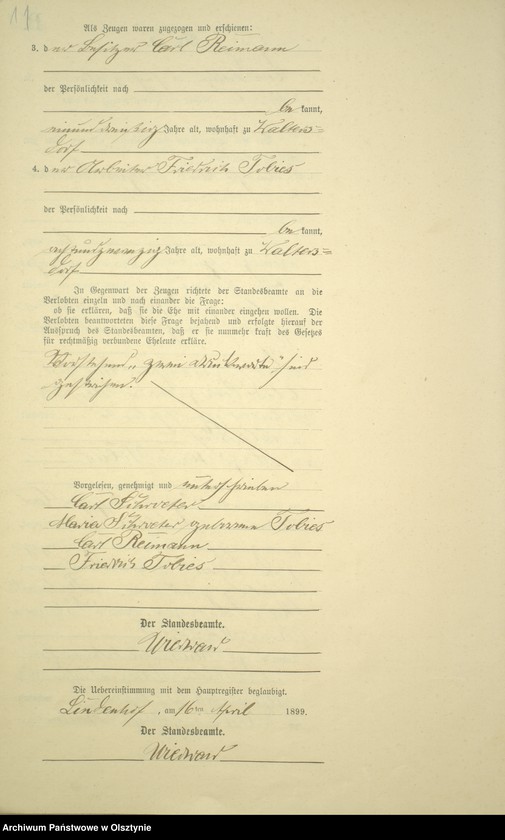 11
Als Zeugen waren zugezogen und erschienen:
3. der Besitzer Carl Reimann
der Persönlichkeit nach
bekannt,
Jahre alt, wohnhaft zu Kalters=
dorf
4. der Arbeiter Friedrich Tobies
der Persönlichkeit nach
bekannt,
achtundzwanzig Jahre alt, wohnhaft zu Kalters=
dorf
In Gegenwart der Zeugen richtete der Standesbeamte an die
Verlobten einzeln und nach einander die Frage:
ob sie erklären, daß sie die Ehe mit einander eingehen wollen. Die
Verlobten beantworteten diese Frage bejahend und erfolgte hierauf der
Ausspruch des Standesbeamten, daß er sie nunmehr kraft des Gesetzes
für rechtmäßig verbundene Eheleute erkläre.
Vorstehend „zwei Druckworte“ sind
gestrichen.
Vorgelesen, genehmigt und unterschrieben
Carl
Maria geborene Tobies
Carl Reimann
Friedrich Tobies
Der Standesbeamte.
Die Uebereinstimmung mit dem Hauptregister beglaubigt.
Lindenhof, am 16ten April 1899.
Der Standesbeamte.
Archiwum Państwowe w Olsztynie